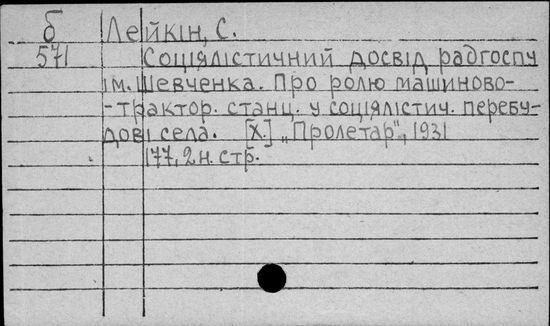 б Лейкін, С.
571 Соціялістичний досвід радгоспу
ім. Шевченка. Про ролю машиново-
-трактор. станц. у соціялістич. перебу-
дові села. [Х.] „Пролетар", 1931
177, 2 н. стр.